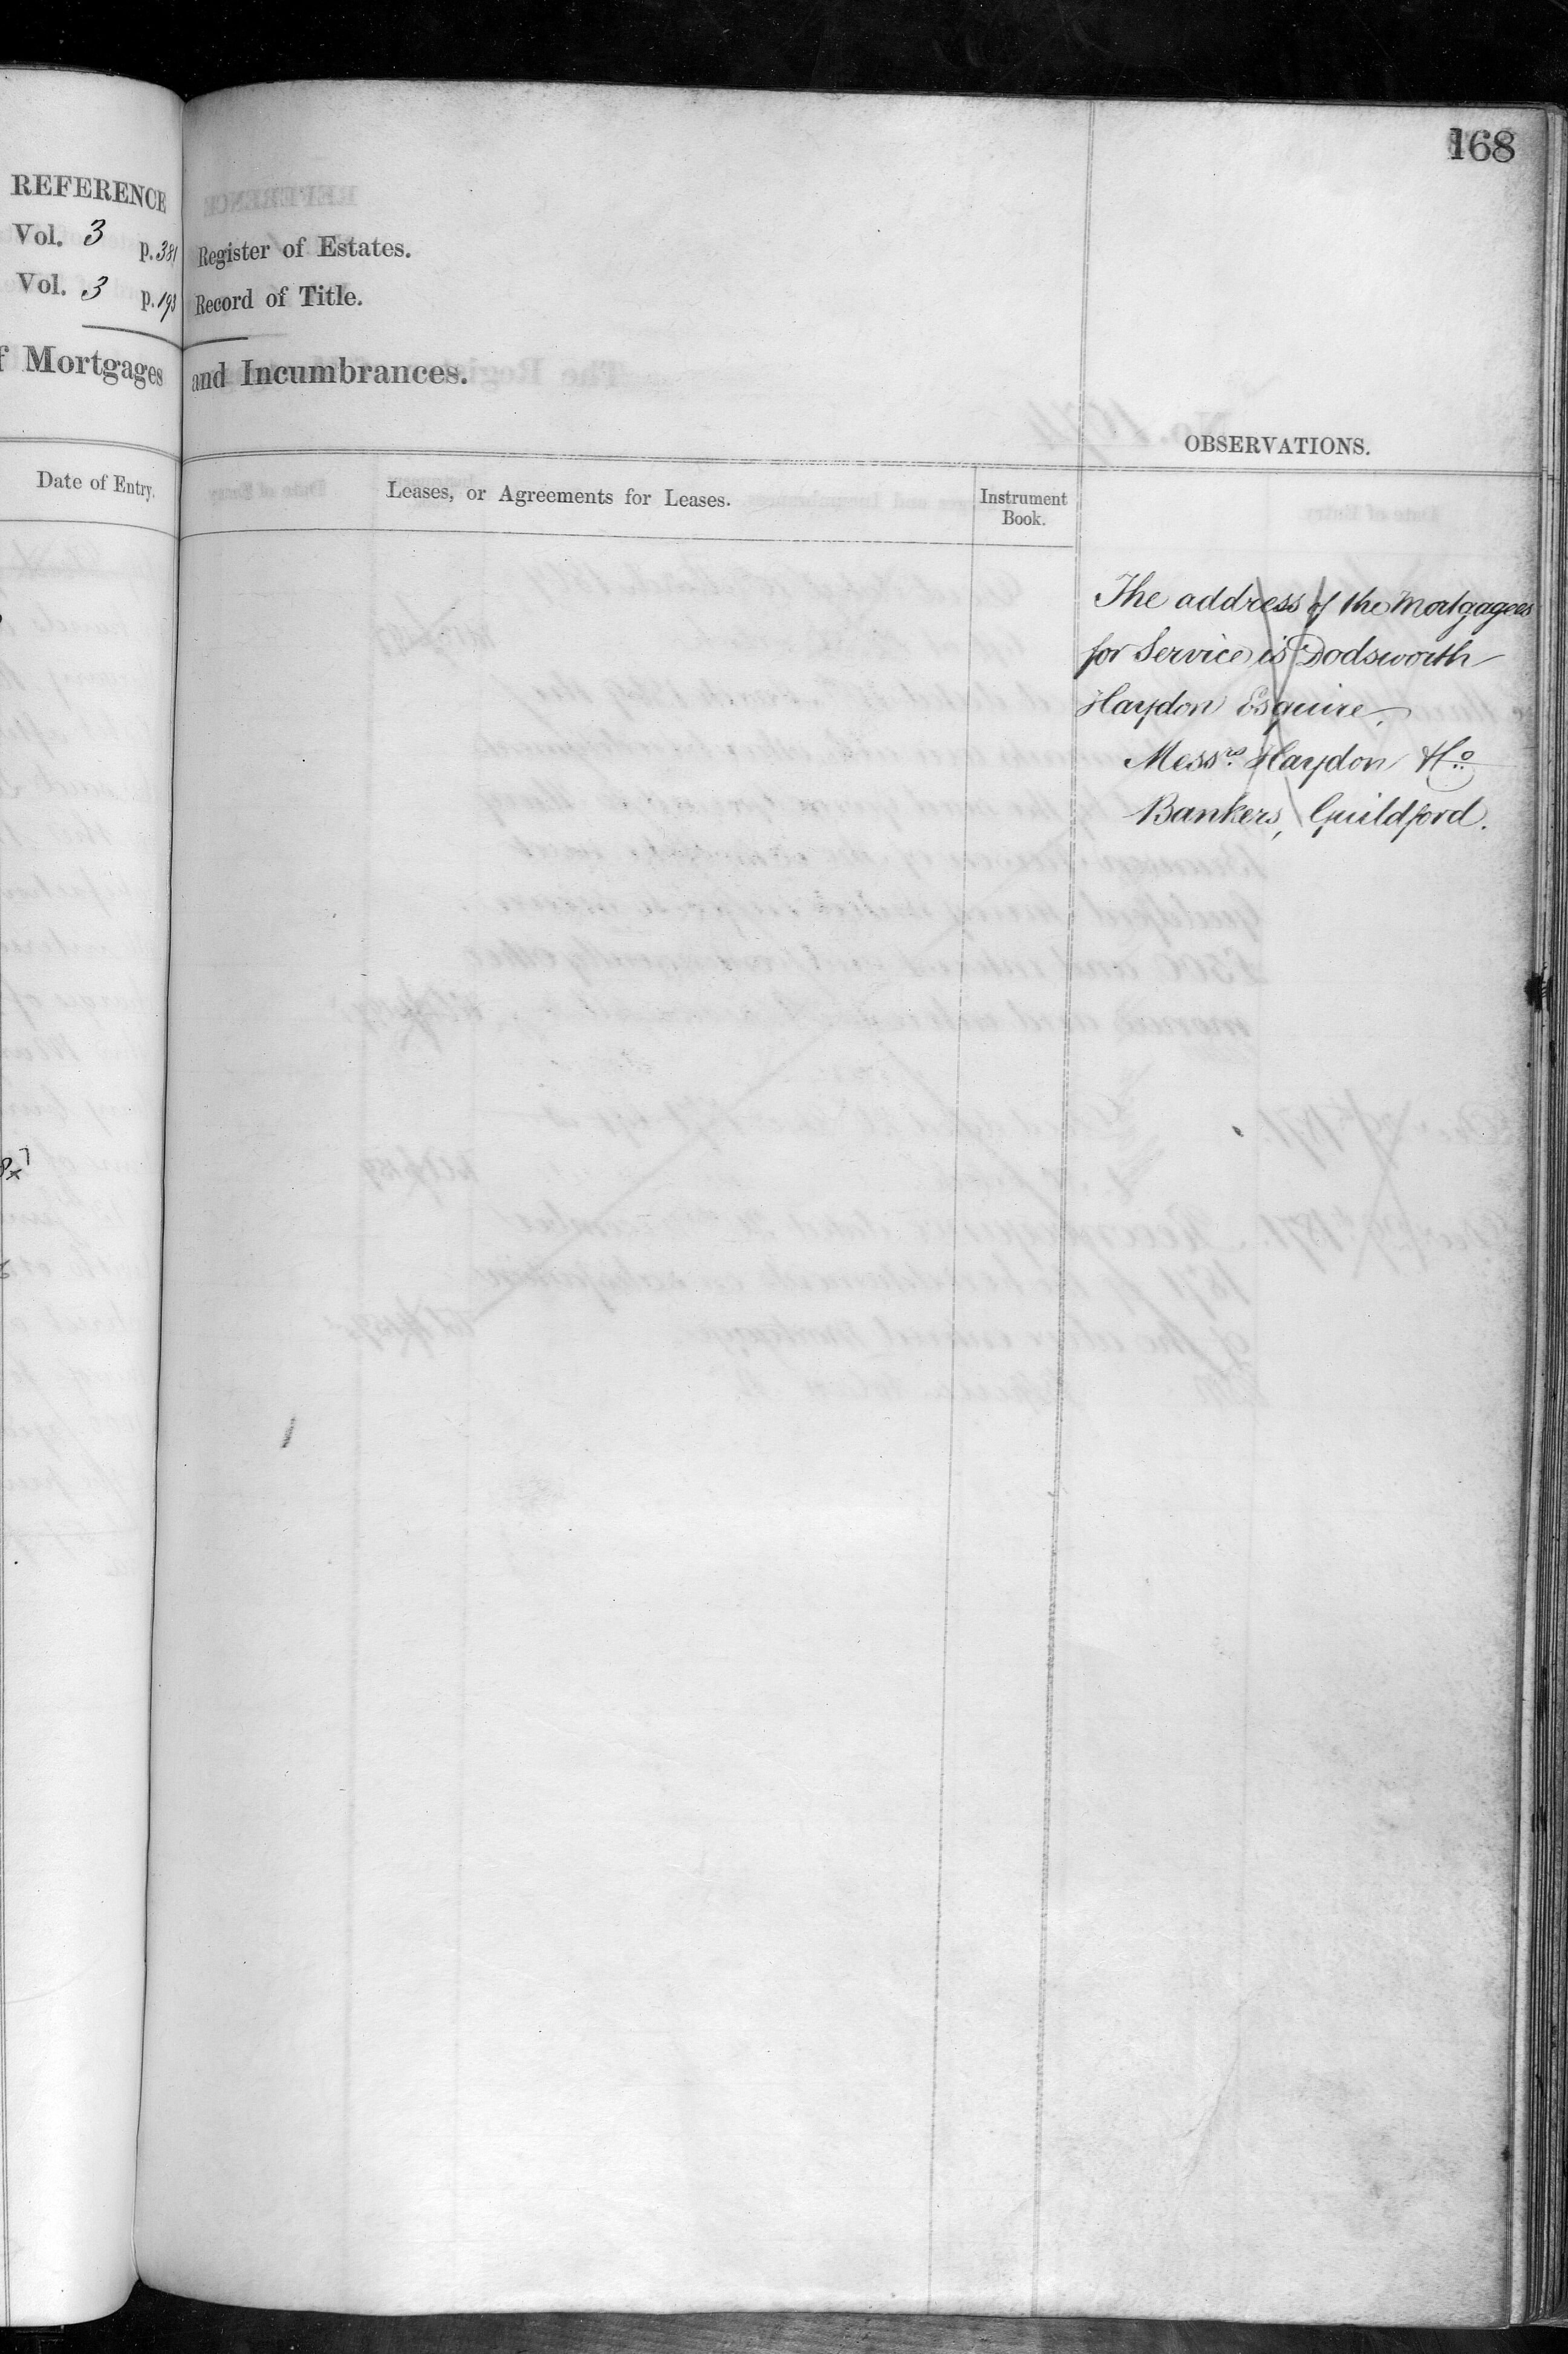 168
REFERENCE
Vol. 3 p. 381 Register of Estates.
Vol. 3 p. 193 Record of Title.
f Mortgages and Incumbrances.
OBSERVATIONS.
Date of Entry.
Leases, or Agreements for Leases.
Instrument
Book.
The address of the Mortgagees
for Service is Dodsworth
Haydon Esquire.
Messrs. Haydon & Co.
Bankers, Guildford.